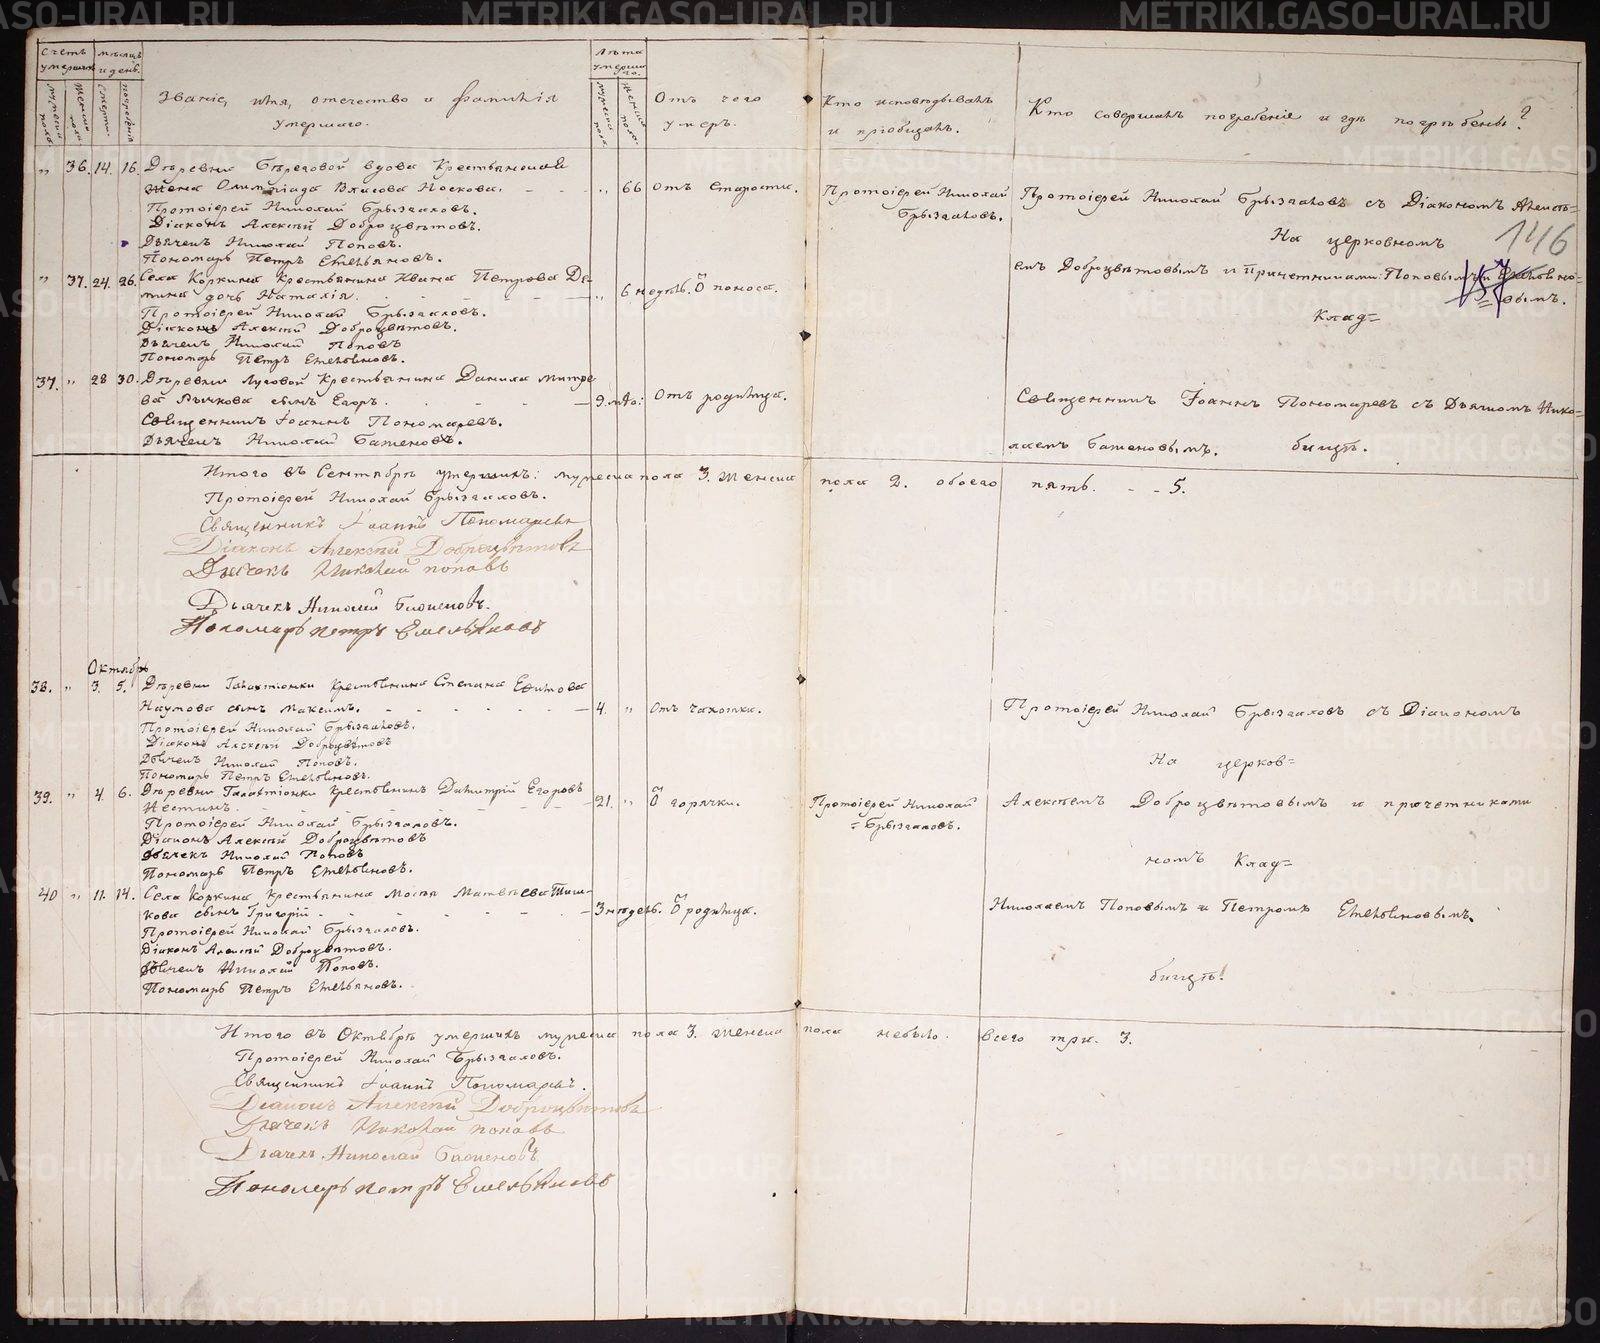 METRIKI.GASO-URAL.RU
Счетъ умершихъ
Мѣсяцъ и день.
Лѣта умершаго.
Мужеска пола.
Женска пола.
Смерти.
Погребенія
Званіе, имя, отечество и фамилія умершаго.
Мужеска пола.
Женска пола.
Отъ чего умеръ.
Кто исповѣдывалъ и пріобщалъ.
Кто совершалъ погребеніе и гдѣ погребены?
146
157
„ 36. 14. 16. Деревни Береговой вдова Крестьянская
жена Олимпіада Власова Носкова. - - - „ 66 Отъ старости. Протоіерей Николай Брызгаловъ.
Протоіерей Николай Брызгаловъ.
Діаконъ Алексѣй Доброцвѣтовъ.
Дьячекъ Николай Поповъ.
Пономарь Петръ Емельяновъ.
Протоіерей Николай Брызгаловъ съ Діакономъ Алексѣ=
На церковномъ
емъ Доброцвѣтовымъ и Причетниками: Поповымъ и
вымъ.
Клад=
„ 37. 24. 26. Села Коркина Крестьянина Ивана Петрова Де-
мина дочь Наталія. - - - „ 6 недѣль. Ѿ поноса.
Протоіерей Николай Брызгаловъ.
Діаконъ Алексѣй Доброцвѣтовъ.
Дьячекъ Николай Поповъ
Пономарь Петръ Емельяновъ.
37. „ 28 30. Деревни Луговой Крестьянина Данила Митре
ва Рычкова сынъ Егоръ. - - - 9. Отъ родимца.
Священникъ Іоаннъ Пономаревъ.
Дьячекъ Николай Баженовъ.
Священникъ Іоаннъ Пономаревъ съ Дьячкомъ Нико=
лаемъ Баженовымъ. бищѣ.
Итого въ Сентябрѣ умершихъ: мужеска пола 3. женска пола 2. обоего пять. - - 5.
Протоіерей Николай Брызгаловъ.
Священникъ Іоаннъ Пономаревъ
Діаконъ Алексѣй Доброцвѣтовъ
Дьячекъ Николай Поповъ
Дьячекъ Николай Баженовъ.
Пономарь Петръ Емельяновъ
Октябрь
38. „ 3. 5. Деревни Галактіонки Крестьянина Степана Ефимова
Наумова сынъ Максимъ. - - - 4. „ Отъ чахотки.
Протоіерей Николай Брызгаловъ.
Діаконъ Алексѣй Доброцвѣтовъ
Дьячекъ Николай Поповъ.
Пономарь Петръ Емельяновъ.
Протоіерей Николай Брызгаловъ съ Діакономъ
На церков=
39. „ 4. 6. Деревни Галактіонки Крестьянинъ Димитрій Егоровъ
- - - 21. „ Ѿ горячки. Протоіерей Николай Брызгаловъ.
Протоіерей Николай Брызгаловъ.
Діаконъ Алексѣй Доброцвѣтовъ
Дьячекъ Николай Поповъ
Пономарь Петръ Емельяновъ.
Алексѣемъ Доброцвѣтовымъ и причетниками
номъ Клад=
40 „ 11. 14. Села Коркина Крестьянина Мосѣя Матвѣева
кова сынъ Григорій - - - 3 недѣль. Ѿ родимца.
Протоіерей Николай Брызгаловъ.
Діаконъ Алексѣй Доброцвѣтовъ.
Дьячекъ Николай Поповъ.
Пономарь Петръ Емельяновъ.
Николаемъ Поповымъ и Петромъ Емельяновымъ.
бищѣ.
Итого въ Октябрѣ умершихъ мужеска пола 3. женска пола небыло. Всего три. 3.
Протоіерей Николай Брызгаловъ.
Священникъ Іоаннъ Пономаревъ.
Діаконъ Алексѣй Доброцвѣтовъ
Дьячекъ Николай Поповъ
Дьячекъ Николай Баженовъ
Пономарь Петръ Емельяновъ